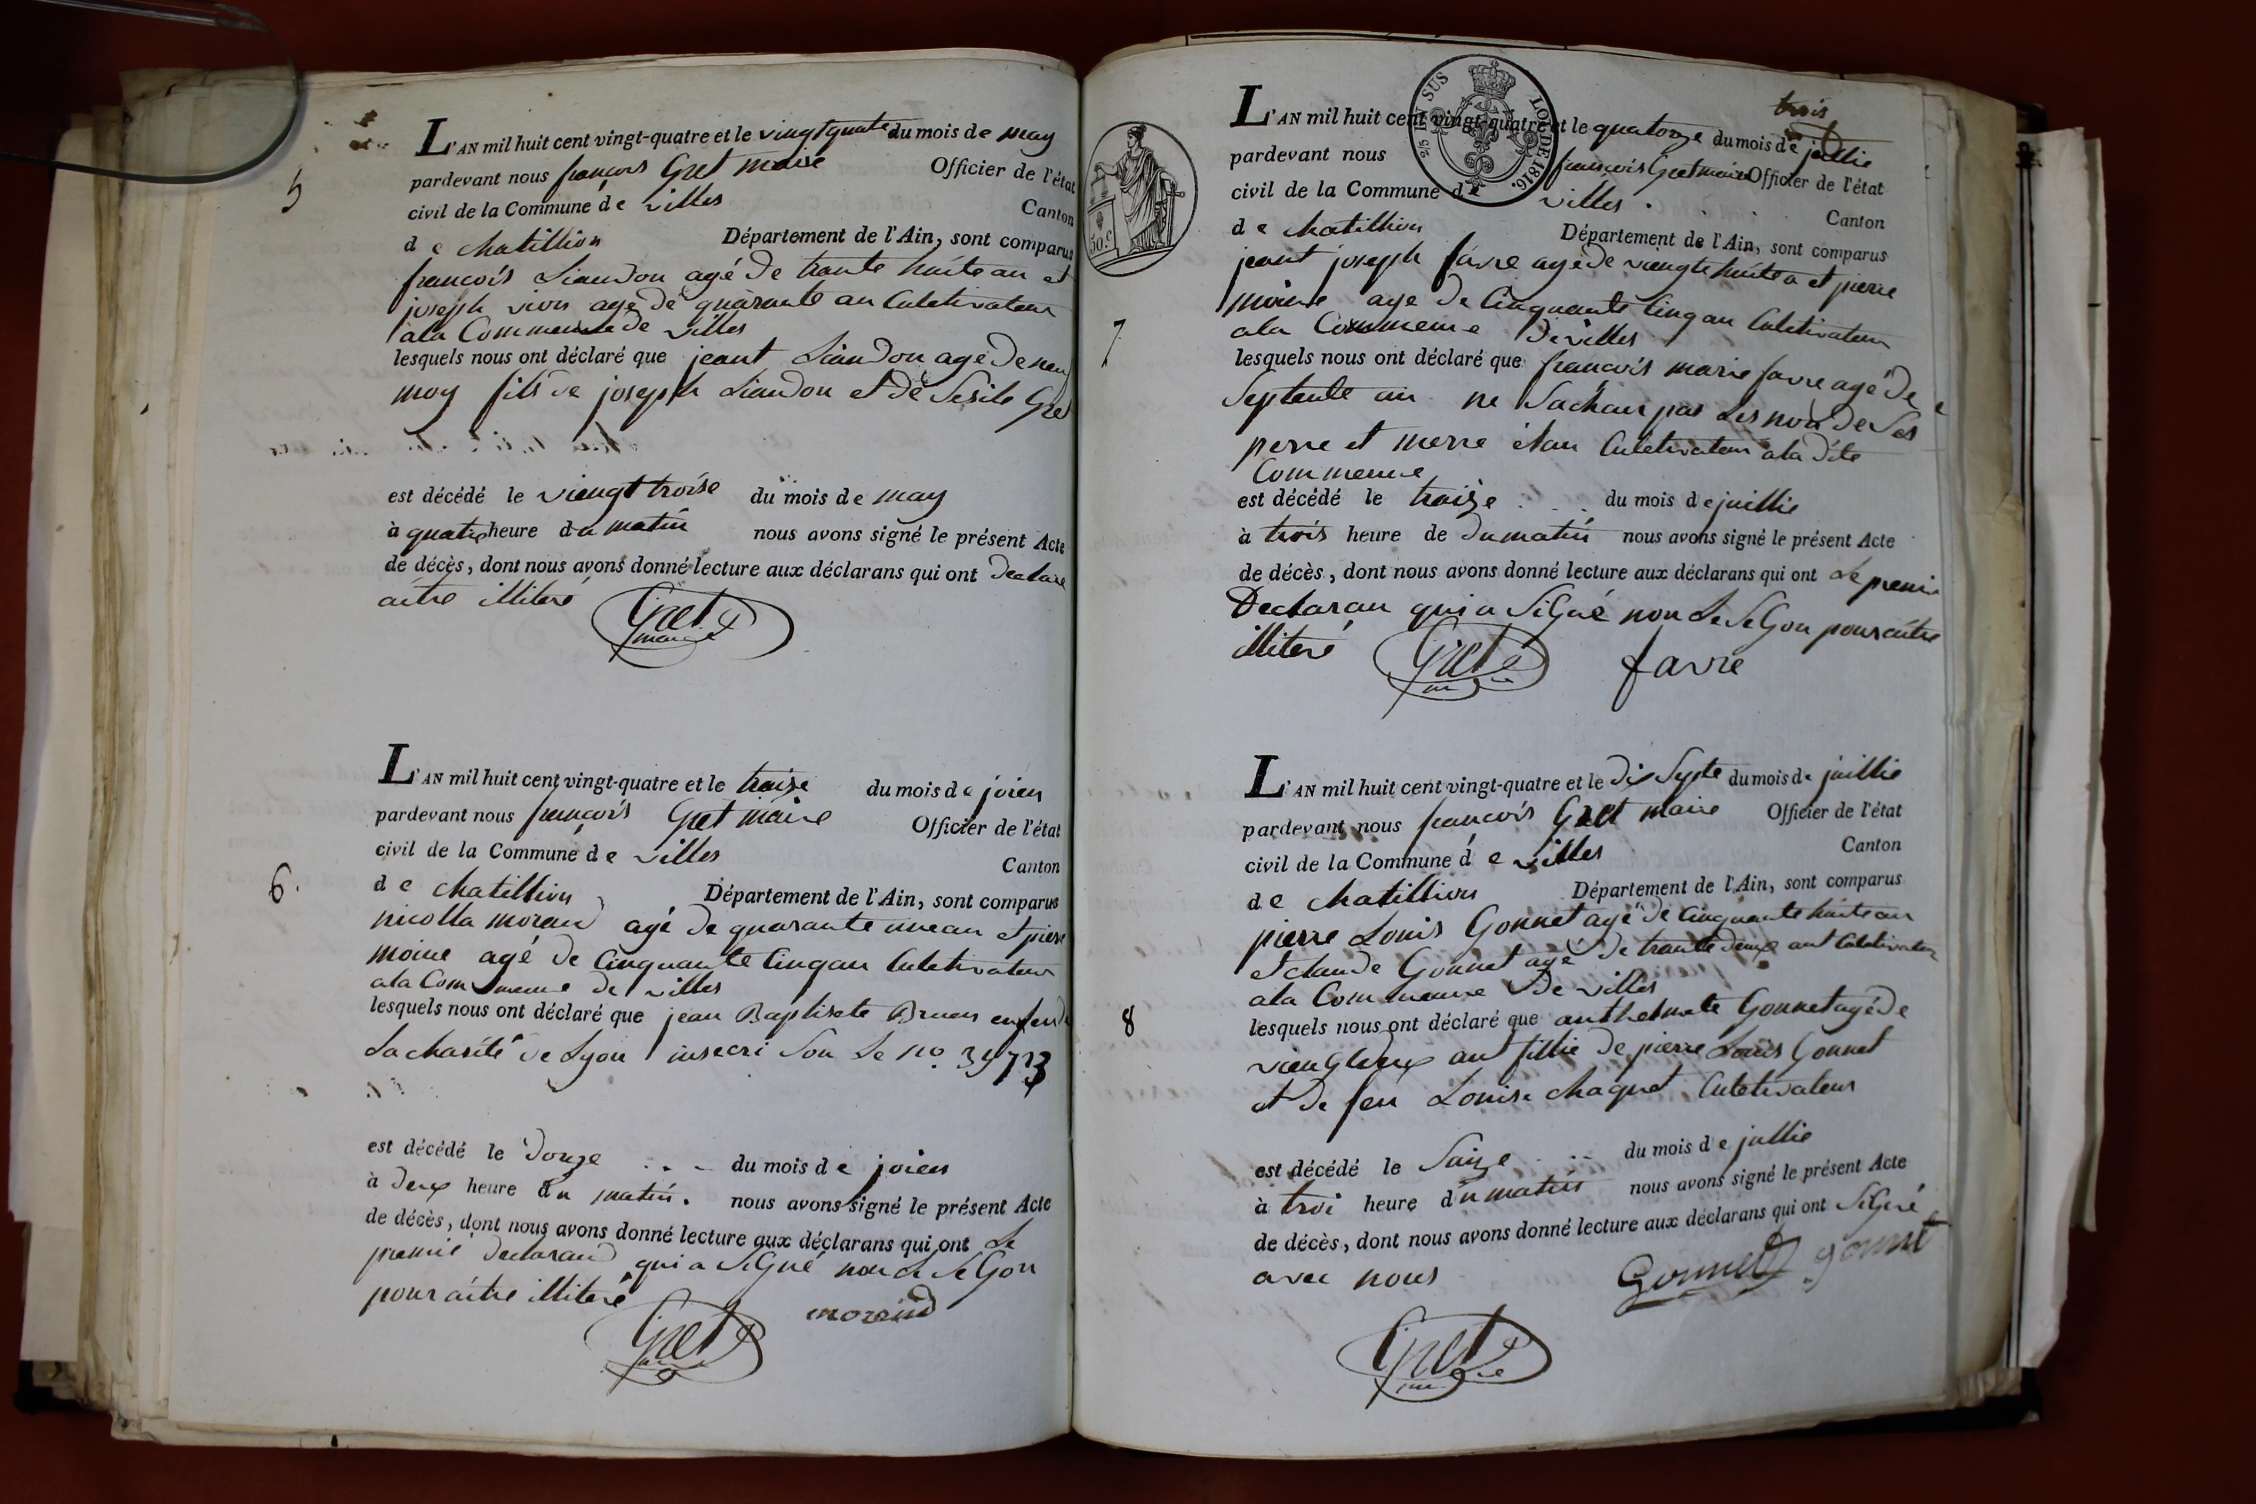 5
L'AN mil huit cent vingt-quatre et le vingt quatre du mois de may
pardevant nous francois Gret maire Officier de l'état
civil de la Commune de villes Canton
de chatillion Département de l'Ain, sont comparus
francois Liaudon agé de trante huite an et
joseph agé de quarante an Culetivateur
a la Commeune de villes
lesquels nous ont déclaré que jeant Liaudon agé De neuf
moy fils de joseph Liaudon et de Sesile Gret
est décédé le viengt troise du mois de may
à quatre heure du matin nous avons signé le présent Acte
de décès, dont nous avons donné lecture aux déclarans qui ont declaré
aitre illiteré
Gret
maire
6.
L'AN mil huit cent vingt-quatre et le traize du mois de joien
pardevant nous francois Gret maire Officier de l'état
civil de la Commune de villes Canton
de chatillion Département de l'Ain, sont comparus
nicolla morand agé de quarante une an et piere
moine agé de Cinquante Cinq an Culetivateur
a la Commeune de villes
lesquels nous ont déclaré que jean Baptiste enfen de
La charité de Lyon insecri Sou Le no.
est décédé le douze du mois de joien
à deux heure du matin. nous avons signé le présent Acte
de décès, dont nous avons donné lecture aux déclarans qui ont Le
premié declarand qui a SiGné non Le SeGon
pour aitre illiteré
Gret
morand
trois
L'AN mil huit cent vingt-quatre et le quatorze du mois de juillie
pardevant nous francois Gret maire Officier de l'état
civil de la Commune de villes Canton
2/5 EN SUS LOI DE 1816.
50 c
de chatillion Département de l'Ain, sont comparus
jeant joseph favre agé de viengte huite a et pierre
moine age De Cinquante Cinq an Culetivateur
7
a la Commeune De villes
lesquels nous ont déclaré que francois marie favre agé De
Septente an ne Sachan pas Les non De Ses
perre et merre étan Culetivateur a la dite
Commeune
est décédé le traize du mois de juillie
à trois heure de du matin nous avons signé le présent Acte
de décès, dont nous avons donné lecture aux déclarans qui ont Le premie
Declaran qui a SiGné non Le SeGon pour aitre
illiteré
Gret
favre
L'AN mil huit cent vingt-quatre et le dis Septe du mois de juillie
pardevant nous francois Gret maire Officier de l'état
civil de la Commune de villes Canton
de chatillion Département de l'Ain, sont comparus
pierre Louis Gonnet agé de Cinquante huite an
et claude Gonnet agé De trante deux ant Culetivateur
a la Commeune De villes
8
lesquels nous ont déclaré que Gonnet agé de
viengt deux ant fillie de pierre Louis Gonnet
et de feu Louise chaquet Culetivateur
est décédé le Saize du mois de jullie
à troi heure du matin nous avons signé le présent Acte
de décès, dont nous avons donné lecture aux déclarans qui ont SiGné
avec nous
Gonnet gonnet
Gret